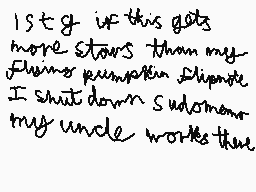 istg if this gets
more stars than my
flying pumpkin flipnote
I shut down sudomemo
my uncle works there